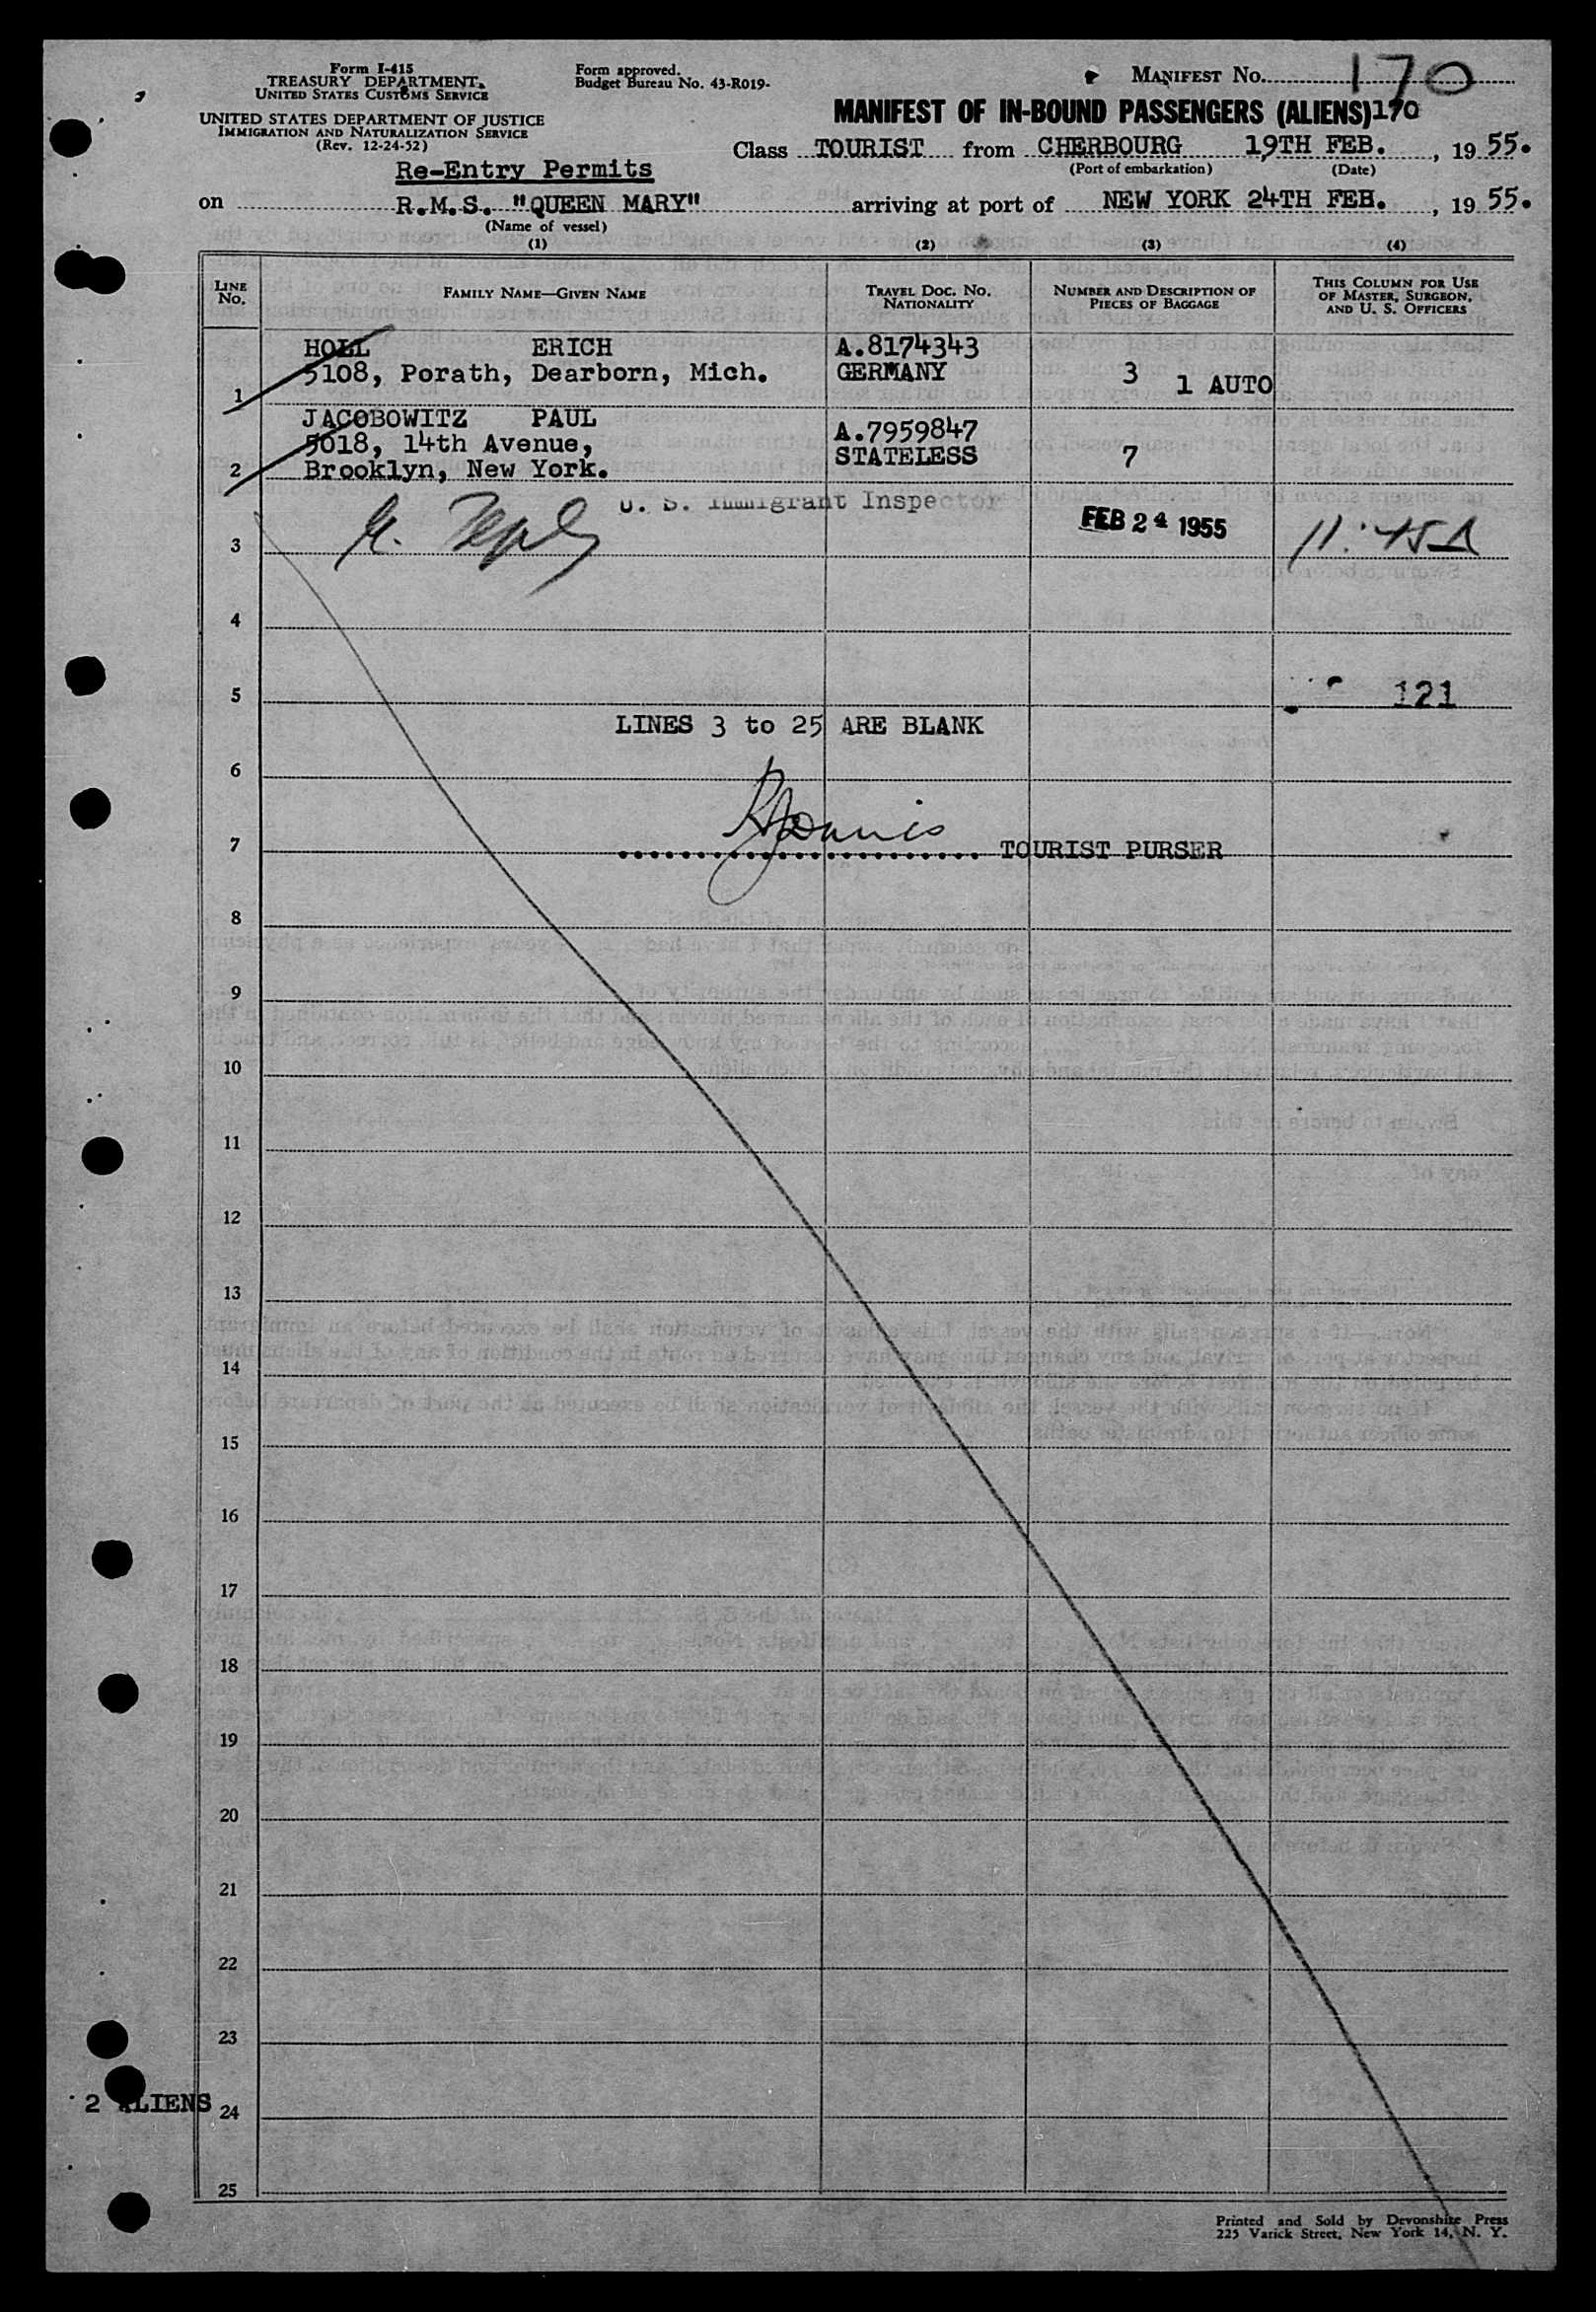 Form I-415
TREASURY DEPARTMENT,
UNITED STATES CUSTOMS SERVICE
UNITED STATES DEPARTMENT OF JUSTICE
IMMIGRATION AND NATURALIZATION SERVICE
(Rev. 12-24-52)
Form approved.
Budget Bureau No. 43-R019-
MANIFEST No. 170
MANIFEST OF IN-BOUND PASSENGERS (ALIENS) 170
Class TOURIST from CHERBOURG 19TH FEB. , 19 55.
(Port of embarkation) (Date)
Re-Entry Permits
on R.M.S. "QUEEN MARY" arriving at port of NEW YORK 24TH FEB. , 19 55.
(Name of vessel)
(1) (2) (3) (4)
LINE No. FAMILY NAME—GIVEN NAME TRAVEL DOC. NO. NATIONALITY NUMBER AND DESCRIPTION OF PIECES OF BAGGAGE THIS COLUMN FOR USE OF MASTER, SURGEON, AND U. S. OFFICERS
HOLL ERICH A.8174343
5108, Porath, Dearborn, Mich. GERMANY 3 1 AUTO
1
JACOBOWITZ PAUL
5018, 14th Avenue, A.7959847
2 Brooklyn, New York. STATELESS 7
U. S. Immigrant Inspector
3 FEB 24 1955 11:45A
4
5 121
LINES 3 to 25 ARE BLANK
6
7 TOURIST PURSER
8
9
10
11
12
13
14
15
16
17
18
19
20
21
22
23
2 ALIENS
24
25
Printed and Sold by Devonshire Press
225 Varick Street, New York 14, N. Y.